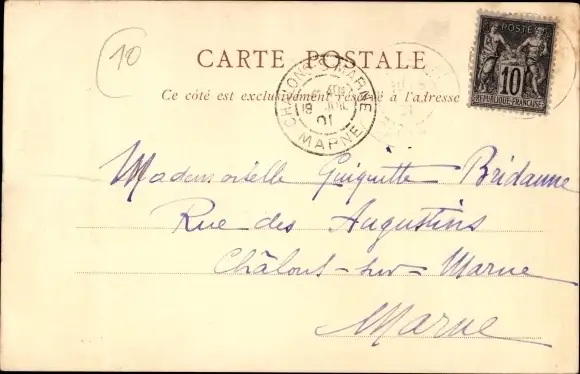 10
POSTE
10
REPUBLIQUE FRANÇAISE
CARTE POSTALE
Ce côté est exclusivement réservé à l'adresse
CHALONS S MARNE
19
01
MARNE
Mademoiselle Guiguitte Bridanne
Rue des Augustins
Châlons-sur-Marne
Marne